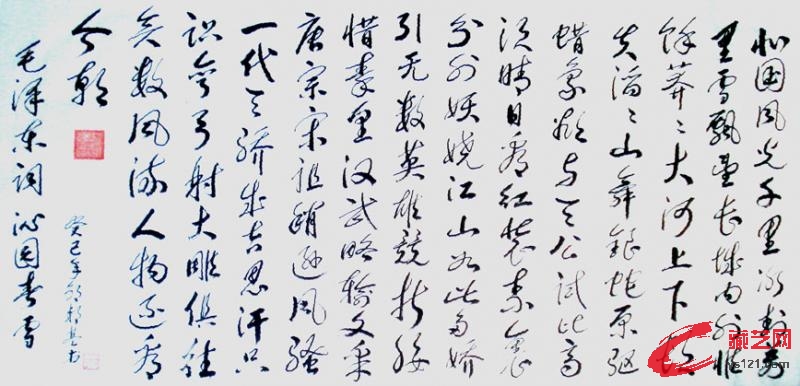 北国风光千里冰封万
里雪飘望长城内外惟
馀莽々大河上下顿
失滔々山舞银蛇原驱
蜡象欲与天公试比高
须晴日看红装素裹
分外妖娆江山如此多娇
引无数英雄竞折腰
惜秦皇汉武略输文采
唐宗宋祖稍逊风骚
一代天骄成吉思汗只
识弯弓射大雕俱往
矣数风流人物还看
今朝
毛泽东词沁园春雪
癸巳年
藏艺网
ys121.com